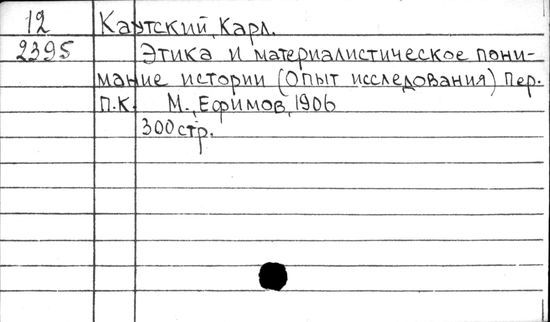 12 Каутский, Карл.
2395 Этика и материалистическое пони-
мание истории (Опыт исследования) Пер.
П.К. М., Ефимов, 1906
300 стр.